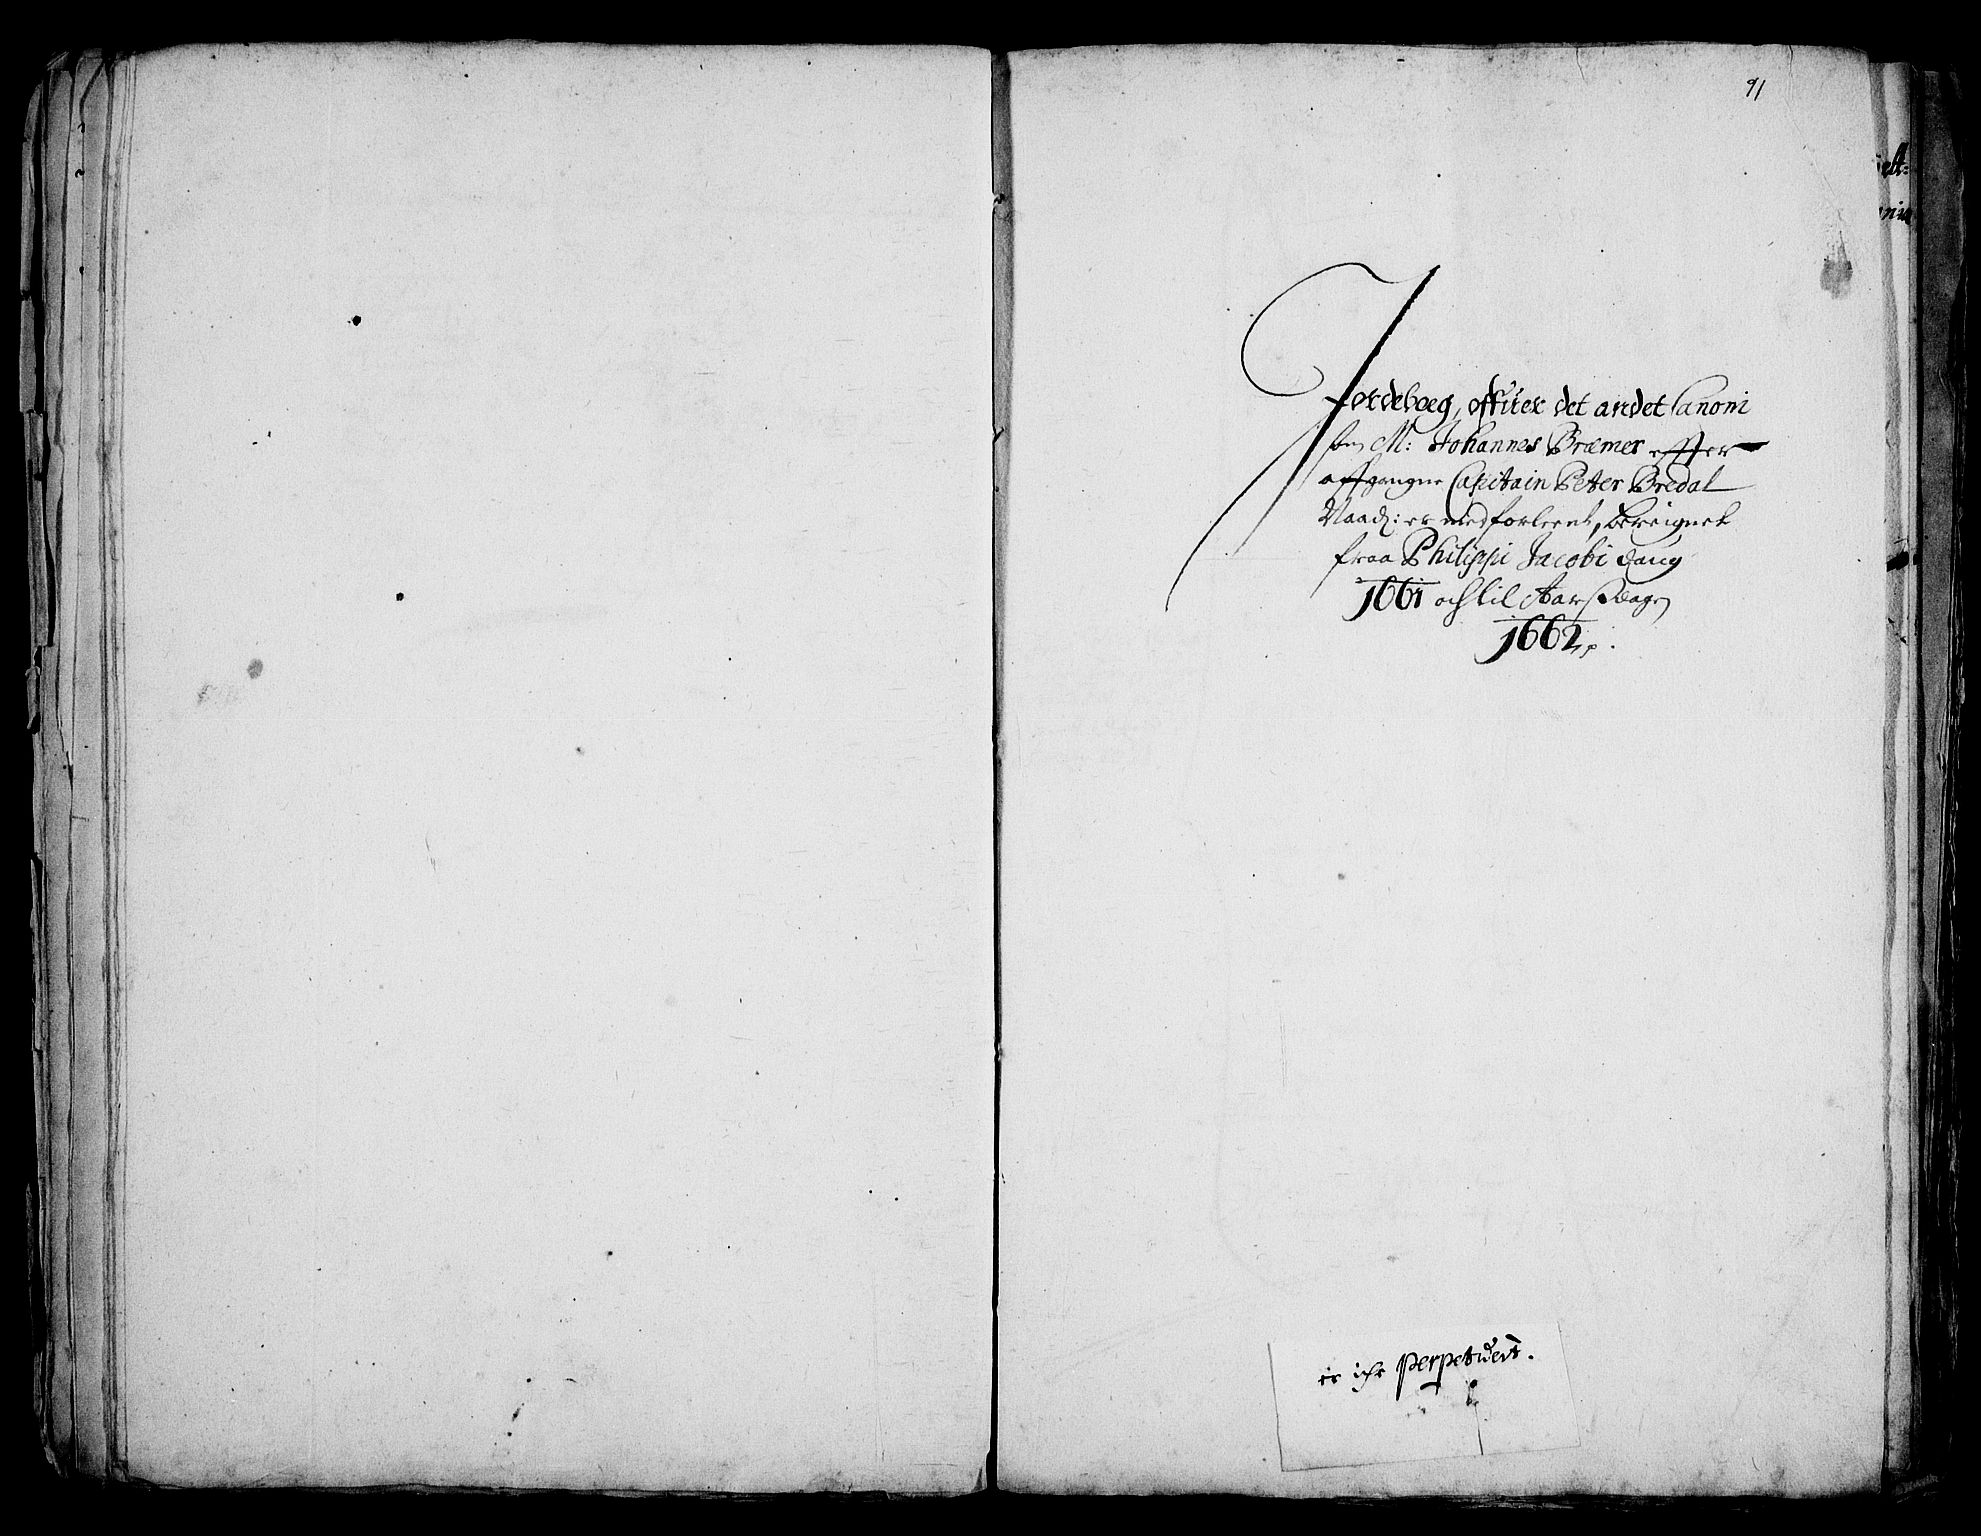 91
Jordeboeg, offuer det andet Canoni
som M: Johannes Bræmer effter
affgangne Capitain Peter Bredal
Naad: er med forleent, bereignet
fraa Philippi Jacobi daug
1661 och til Aarsdagen
1662
er ichr perpetuert.